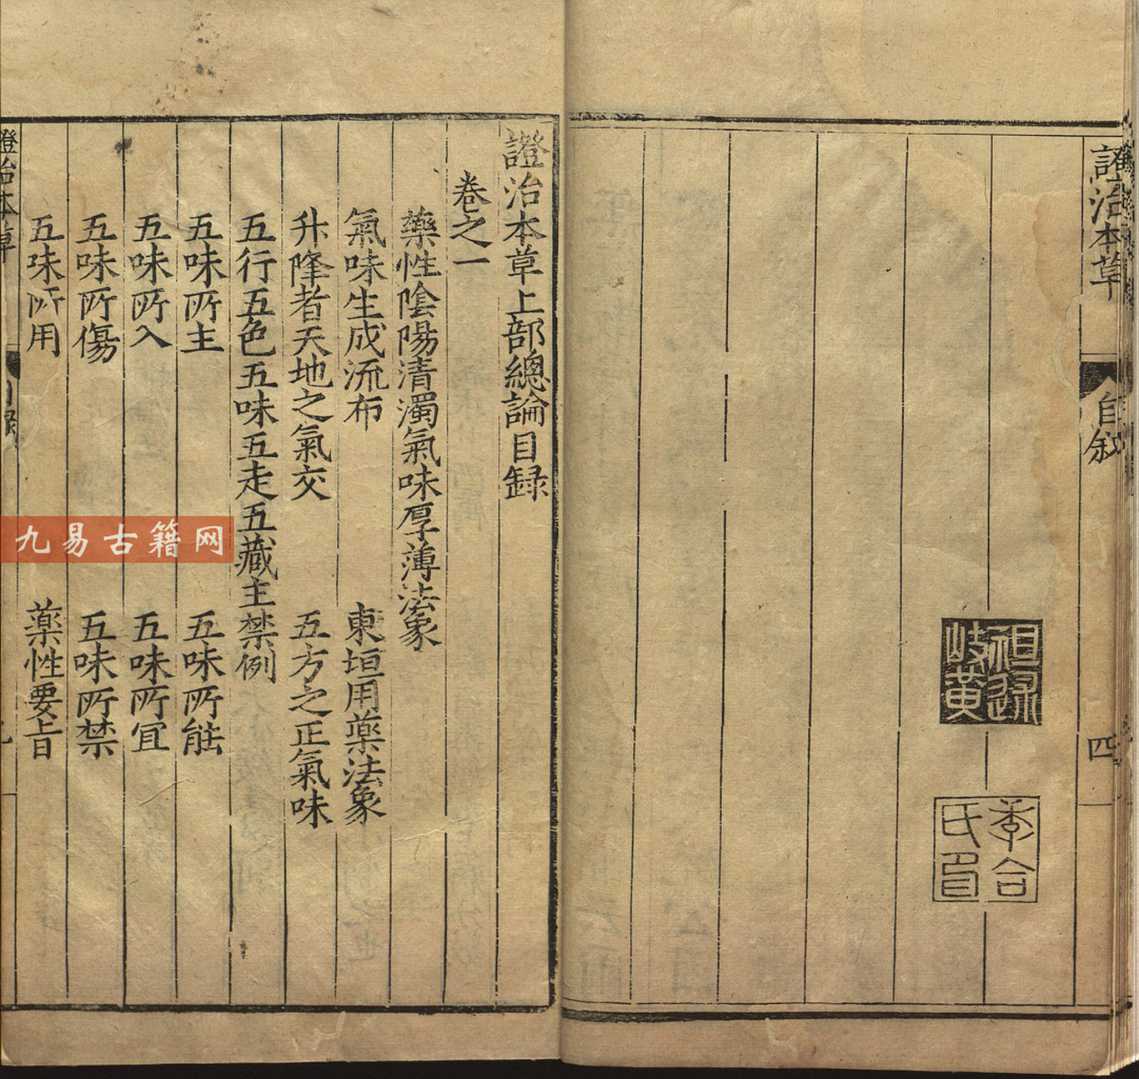 證治本草
自叙
四
祖述岐黄
證治本草上部總論目録
卷之一
藥性陰陽清濁氣味厚薄法象
氣味生成流布 東垣用藥法象
升降者天地之氣交 五方之正氣味
五行五色五味五走五藏主禁例
五味所主 五味所能
五味所入 五味所宜
五味所傷 五味所禁
五味所用 藥性要旨
證治本草 目録
九易古籍网